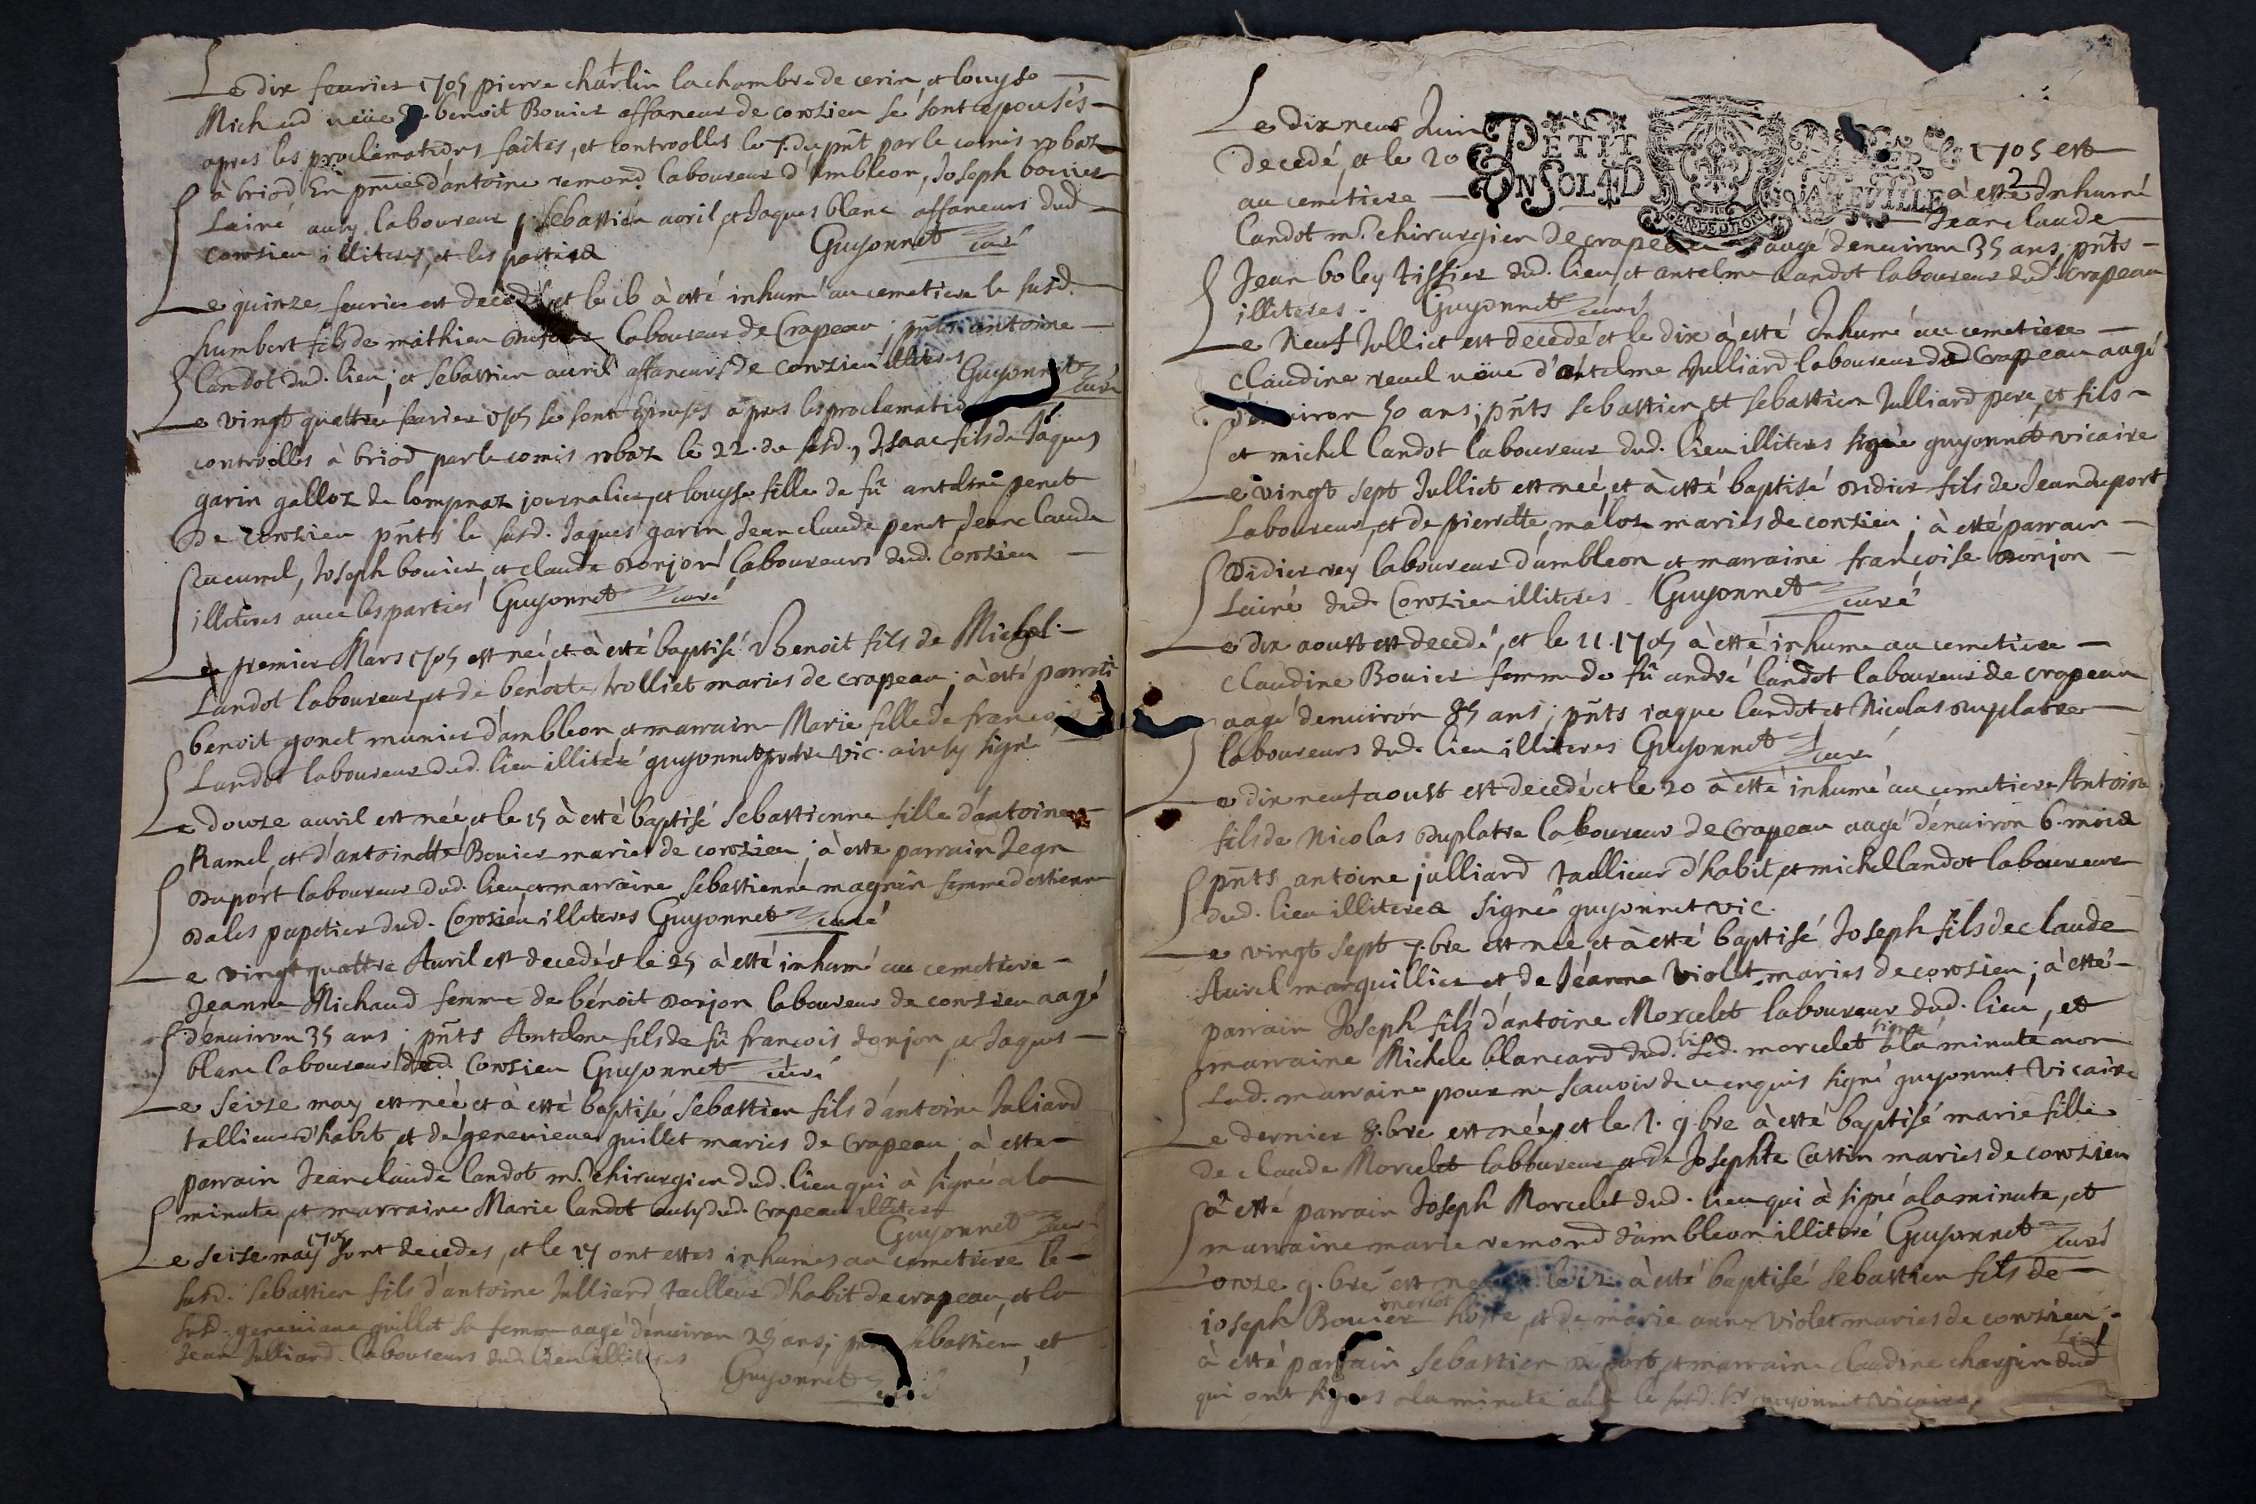 Le dix feurier 1705 pierre charlin lachambre de cerin, et louyse
Michaud veüe benoit Bouier affaneur de conzieu se sont epousés
apres les proclamations faites, et controolles le 7. du pnt par le comis robaz
à briod En pnce d'antoine remond laboureur d'Ambleon, Joseph bouier
Lainé aussy laboureur, sebastien auril et Jaques blanc affaneurs dud
Conzieu illiteres, et les parties Guyonnet curé
Le quinze feurier est decedé et le 16 à esté inhumé au cemetiere le susd.
humbert fils de mathieu laboureur de Crapeau; pnts antoine
landot dud. lieu, et sebastien auril affaneurs de conzieu illiteres Guyonnet curé
Le vingt quattre feurier 1705 se sont Epousés apres les proclamations
controolles à briod par le comis robaz le 22. du susd., Isaac fils de Jaques
garin galloz de lompnaz journalier, et louyse fille de fû antelme penet
de conzieu pnts le susd. Jaques garin, Jean claude penet, Jean claude
cucurel, Joseph bouier, et claude Donjon laboureurs dud. Conzieu
illiteres auec les parties Guyonnet curé
Le premier Mars 1705 est né, et à esté baptisé Benoit fils de Michel
Landot laboureur, et de benoite trolliet mariés de crapeau; à esté parrain
benoit gonet munier d'ambleon, et marraine Marie fille de francois
Landot laboureur dud. lieu illiteré guyonnet vic. ainsy signé
Le douze auril est née, et le 15 à esté baptisé sebastienne fille d'antoine
Ramel, et d'antoinette Bouier mariés de conzieu; à esté parrain Jean
Duport laboureur dud. lieu et marraine sebastienne magnin femme d'estienne
Dales papetier dud. Conzieu illiteres Guyonnet curé
Le vingt quattre Auril est decedé et le 25 à esté inhumé au cemetiere
Jeanne Michaud femme de bénoit Donjon laboureur de conzieu aagé
d'enuiron 35 ans; pnts Antelme fils de fû francois donjon, et Jaques
blanc laboureur dud. Conzieu Guyonnet curé
Le seize may est né et à esté baptisé sebastien fils d'antoine Juliard
tallieur d'habit, et de genevieue guillet mariés de Crapeau; à esté
parrain Jean claude landot mr. chirurgien dud. lieu qui à signé a la
minute, et marraine Marie landot aussy dud. Crapeau illiteré Guyonnet curé
Le seise may 1705 sont decedes, et le 17 ont estes inhumes au cemetiere le
susd. sebastien fils d'antoine Julliard tailleur d'habit de crapeau, et la
susd. geneuieue guillet sa femme aagé d'enuiron 25 ans; pnts sebastien, et
Jean Julliard laboureurs dud. lieu illiteres Guyonnet curé
PETIT PAPIER
UN SOL 4 D LA FEUILLE
GN. DE DIION
2
Le dix neuf Juin 1705 est
decedé, et le 20 à esté Inhumé
au cemetiere Jean claude
landot mr. chirurgien de crapeau aagé denuiron 35 ans; pnts
Jean boley tissier dud. lieu, et antelme landot laboureur dud. Crapeau
illiteres. Guyonnet curé
Le Neuf Julliet est decedé et le dix à esté Inhumé au cemetiere
claudine reuel veüe d'antelme Julliard laboureur dud Crapeau aagé
d'enuiron 50 ans; pnts sebastien, et sebastien Julliard pere, et fils
et michel landot laboureur dud. lieu illiteres signé guyonnet vicaire
Le vingt sept Julliet est né, et à esté baptisé Didier fils de Jean duport
Laboureur, et de pierrette maloz mariés de conzieu; à esté parrain
Didier rey laboureur d'ambleon et marraine françoise Donjon
Lainé dud. Conzieu illiteres Guyonnet curé
Le dix aoust est decedé, et le 11. 1705 à esté inhume au cemetiere
claudine Bouier femme de fû andré landot laboureur de crapeau
aagé denuiron 85 ans; pnts jaque landot et Nicolas Duplatre
laboureurs dud. lieu illiteres Guyonnet curé
Le dix neuf aoust est decedé et le 20 à esté inhumé au cemetiere Antoine
fils de Nicolas Duplatre laboureur de Crapeau aagé d'enuiron 6. mois
pnts antoine julliard tallieur d'habit, et michel landot laboureur
dud. lieu illiteres signé guyonnet vic.
Le vingt sept 7.bre est né et à esté baptisé Joseph fils de claude
Auril marguillier et de Jeanne Violet mariés de conzieu; à esté
parrain Joseph fils d'antoine Morcelet laboureur dud. lieu, et
marraine Michele blancard dud. li Led. morcelet signé à la minute non
Lad. marraine pour ne scauoir de ce enquis signé guyonnet Vicaire
Le dernier 8.bre est née, et le 1. 9.bre à esté baptisé marie fille
de claude Morcelet laboureur, et de Josephte Castin mariés de conzieu
à esté parrain Joseph Morcelet dud. lieu qui à signé a la minute, et
marraine marie remond d'ambleon illiteré Guyonnet curé
L'onze 9.bre est né et le 12 à esté baptisé sebastien fils de
joseph Bouier hoste, et de marie anne Violet mariés de conzieu
à esté parrain sebastien duport, et marraine claudine charpin dud lieu
qui ont signes a la minute le susd. guyonnet vicaire